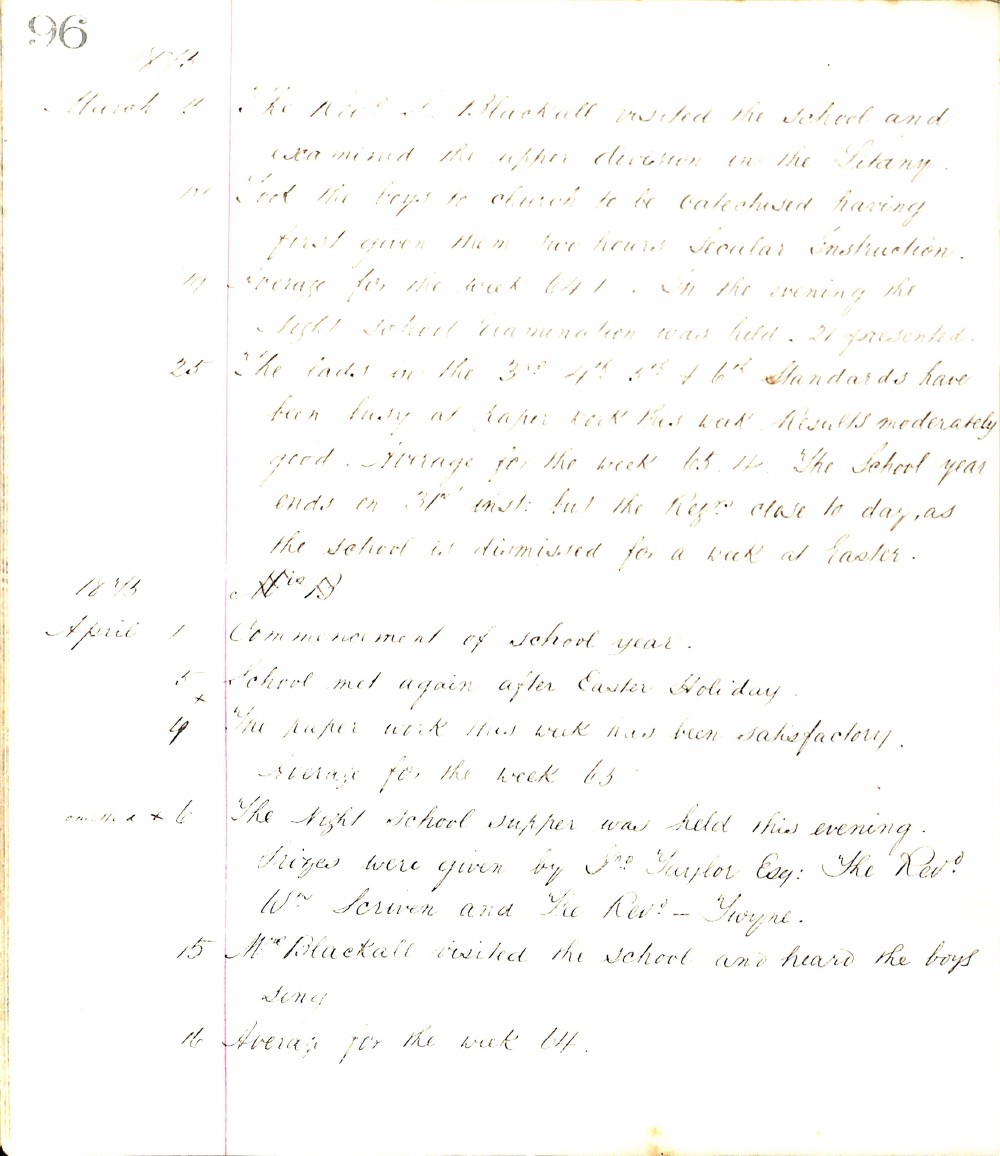 96
March The Revd Blackall visited the school and
examined the upper division in the Litany.
Took the boys to church to be catechised having
first given them two hours Secular Instruction.
19 Average for the week 64.1. In the evening the
Night School Examination was held. 21 presented.
25 The lads in the 3rd 4th 5th & 6th Standards have
been busy at paper work this week. Results moderately
good. Average for the week 65.4. The School year
ends on 31st inst: but the Regrs close to day, as
the school is dismissed for a week at Easter.
April 1 Commencement of school year.
5 School met again after Easter Holiday.
x
9 The paper work this week has been satisfactory.
Average for the week 65
x 6 The Night school supper was held this evening.
Prizes were given by Jno Taylor Esq: The Revd
Wm Scriven and The Revd — Gwyne.
15 Mrs Blackall visited the school and heard the boys
sing
16 Average for the week 64.